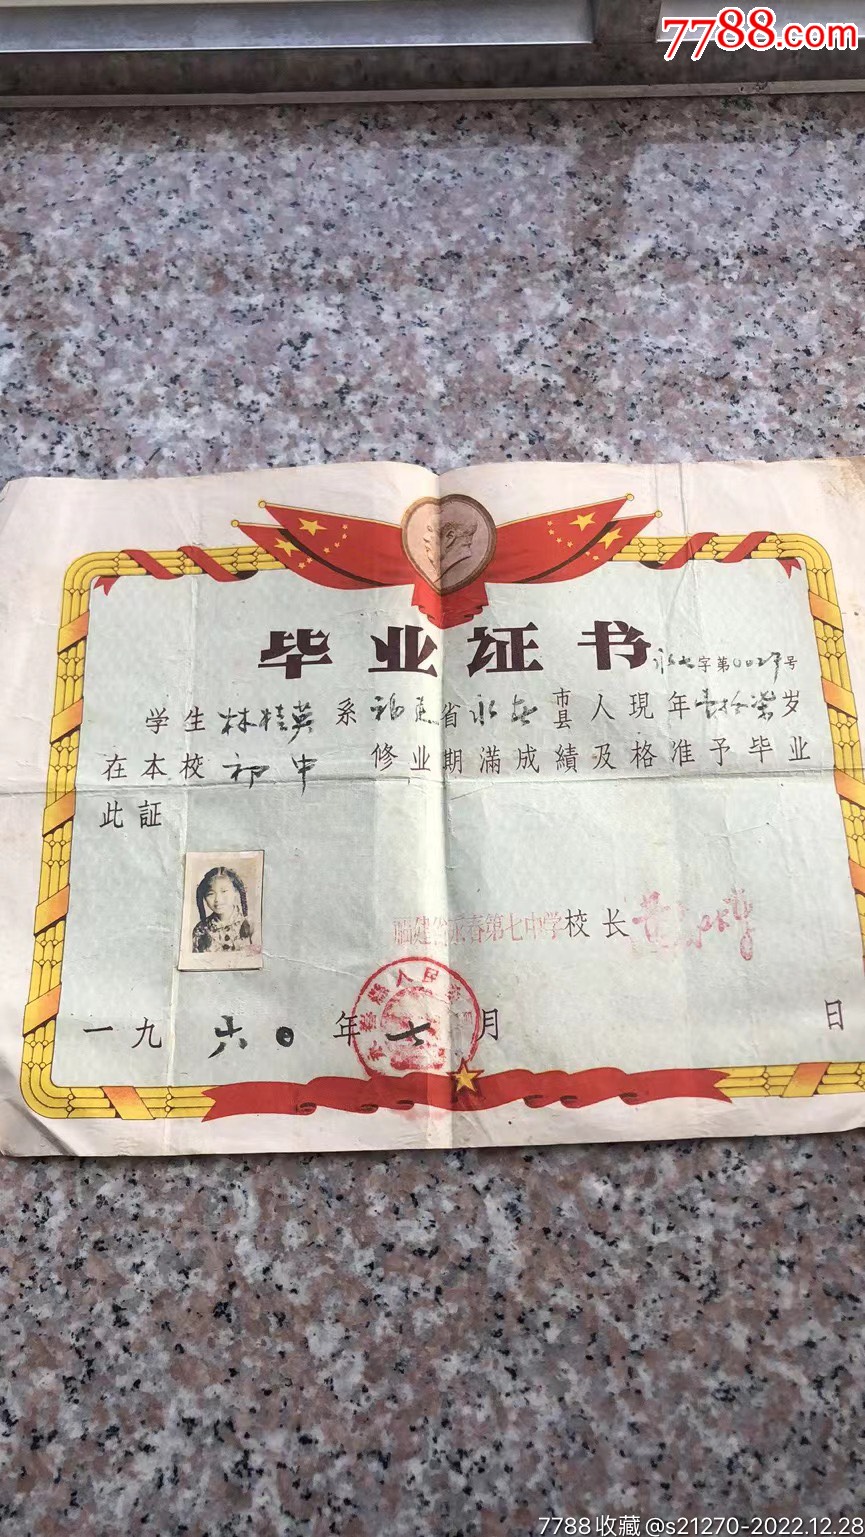 7788.com
毕业证书
永七字第0029号
学生林桂英系福建省永春市县人現年壹拾柒岁
在本校初中 修业期滿成績及格准予毕业
此証
福建省永春第七中学校长
一九六〇年七月 日
7788收藏@s21270-2022.12.28